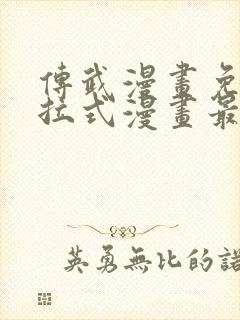 傳武漫畫免
拉式漫畫最
英勇無比的諾